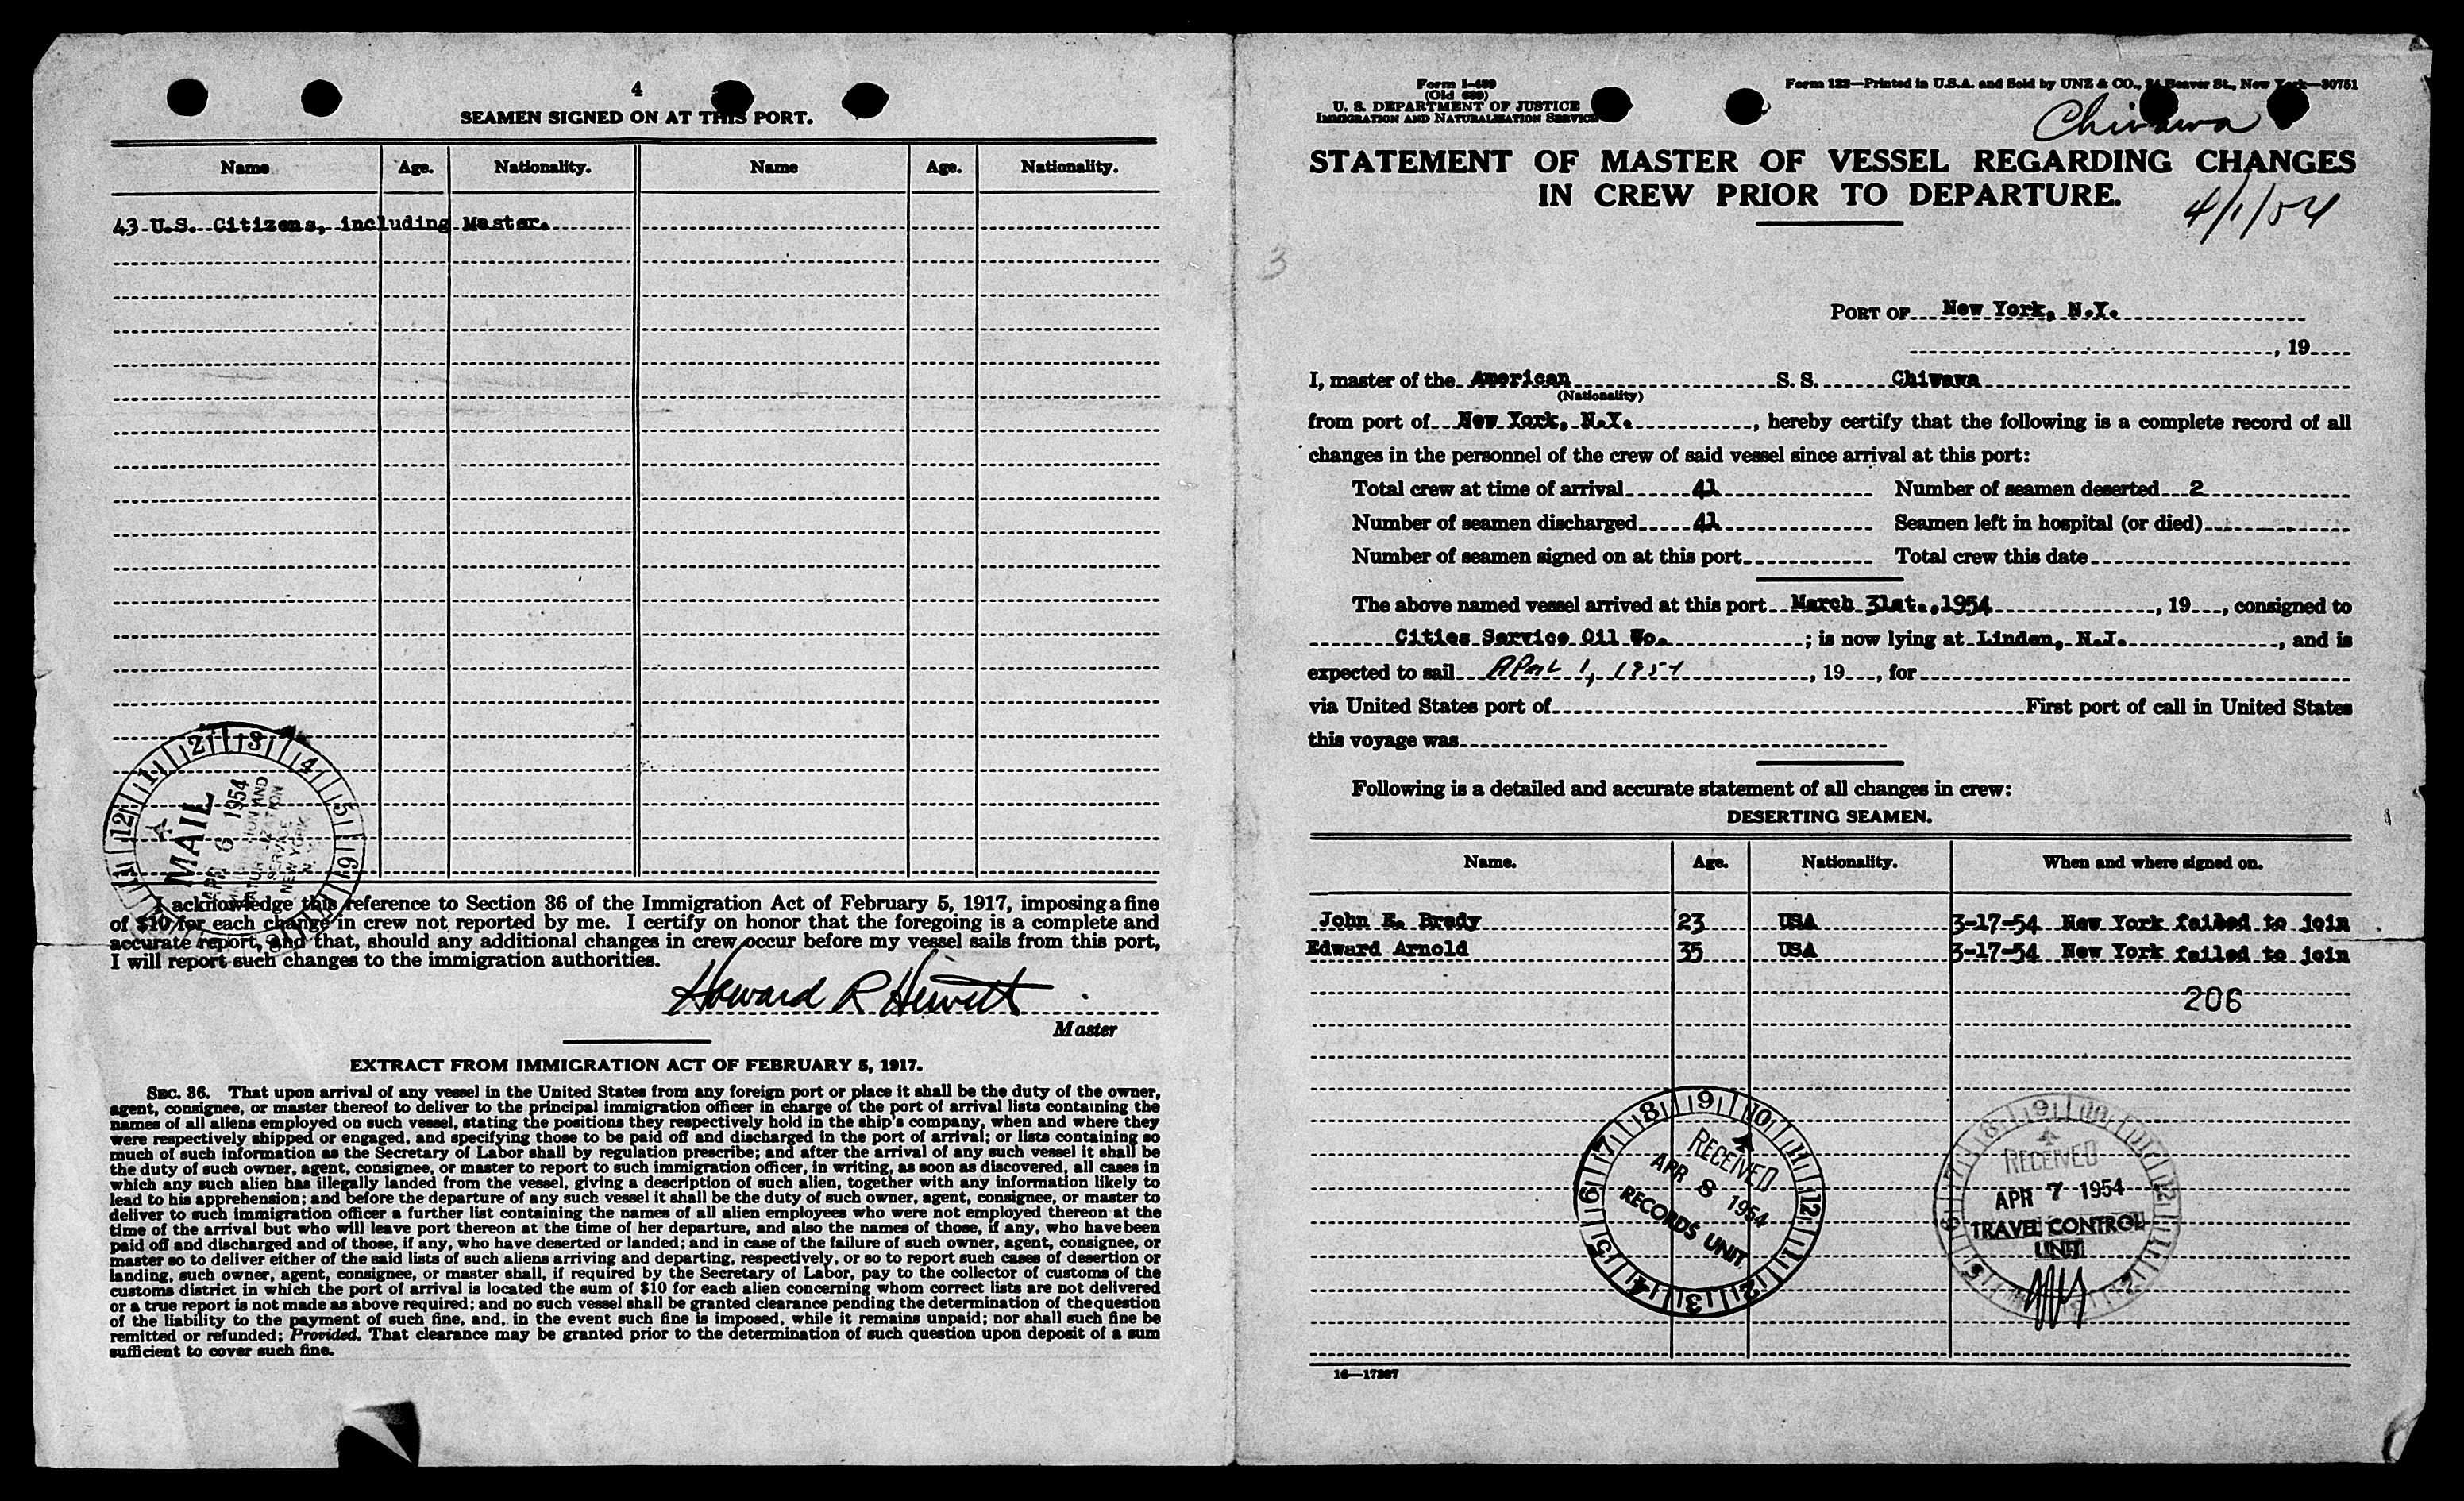 4
SEAMEN SIGNED ON AT THIS PORT.
Name Age. Nationality. Name Age. Nationality.
43 U.S. Citizens, including Master.
12 1 2 3 4 5 6
MAIL
APR 6 1954
NEW YORK
I acknowledge this reference to Section 36 of the Immigration Act of February 5, 1917, imposing a fine
of $10 for each change in crew not reported by me. I certify on honor that the foregoing is a complete and
accurate report, and that, should any additional changes in crew occur before my vessel sails from this port,
I will report such changes to the immigration authorities.
Howard R Hewitt
Master
EXTRACT FROM IMMIGRATION ACT OF FEBRUARY 5, 1917.
SEC. 36. That upon arrival of any vessel in the United States from any foreign port or place it shall be the duty of the owner,
agent, consignee, or master thereof to deliver to the principal immigration officer in charge of the port of arrival lists containing the
names of all aliens employed on such vessel, stating the positions they respectively hold in the ship's company, when and where they
were respectively shipped or engaged, and specifying those to be paid off and discharged in the port of arrival; or lists containing so
much of such information as the Secretary of Labor shall by regulation prescribe; and after the arrival of any such vessel it shall be
the duty of such owner, agent, consignee, or master to report to such immigration officer, in writing, as soon as discovered, all cases in
which any such alien has illegally landed from the vessel, giving a description of such alien, together with any information likely to
lead to his apprehension; and before the departure of any such vessel it shall be the duty of such owner, agent, consignee, or master to
deliver to such immigration officer a further list containing the names of all alien employees who were not employed thereon at the
time of the arrival but who will leave port thereon at the time of her departure, and also the names of those, if any, who have been
paid off and discharged and of those, if any, who have deserted or landed; and in case of the failure of such owner, agent, consignee, or
master so to deliver either of the said lists of such aliens arriving and departing, respectively, or so to report such cases of desertion or
landing, such owner, agent, consignee, or master shall, if required by the Secretary of Labor, pay to the collector of customs of the
customs district in which the port of arrival is located the sum of $10 for each alien concerning whom correct lists are not delivered
or a true report is not made as above required; and no such vessel shall be granted clearance pending the determination of the question
of the liability to the payment of such fine, and, in the event such fine is imposed, while it remains unpaid; nor shall such fine be
remitted or refunded; Provided, That clearance may be granted prior to the determination of such question upon deposit of a sum
sufficient to cover such fine.
Form I-489
(Old 689)
U. S. DEPARTMENT OF JUSTICE
IMMIGRATION AND NATURALIZATION SERVICE
Form 122—Printed in U.S.A. and Sold by UNZ & CO., 24 Beaver St., New York—30751
Chiwawa
STATEMENT OF MASTER OF VESSEL REGARDING CHANGES
IN CREW PRIOR TO DEPARTURE.
4/1/54
3
PORT OF New York, N.Y.
, 19
I, master of the American S. S. Chiwawa
(Nationality)
from port of New York, N.Y. , hereby certify that the following is a complete record of all
changes in the personnel of the crew of said vessel since arrival at this port:
Total crew at time of arrival 41 Number of seamen deserted 2
Number of seamen discharged 41 Seamen left in hospital (or died)
Number of seamen signed on at this port Total crew this date
The above named vessel arrived at this port March 31st.,1954 , 19 , consigned to
Cities Service Oil Co. ; is now lying at Linden, N.J. , and is
expected to sail April 1, 1954 , 19 , for
via United States port of First port of call in United States
this voyage was
Following is a detailed and accurate statement of all changes in crew:
DESERTING SEAMEN.
Name. Age. Nationality. When and where signed on.
John E. Brady 23 USA 3-17-54 New York failed to join
Edward Arnold 35 USA 3-17-54 New York failed to join
206
RECEIVED
APR 8 1954
RECORDS UNIT
RECEIVED
APR 7 1954
TRAVEL CONTROL
UNIT
16—17387